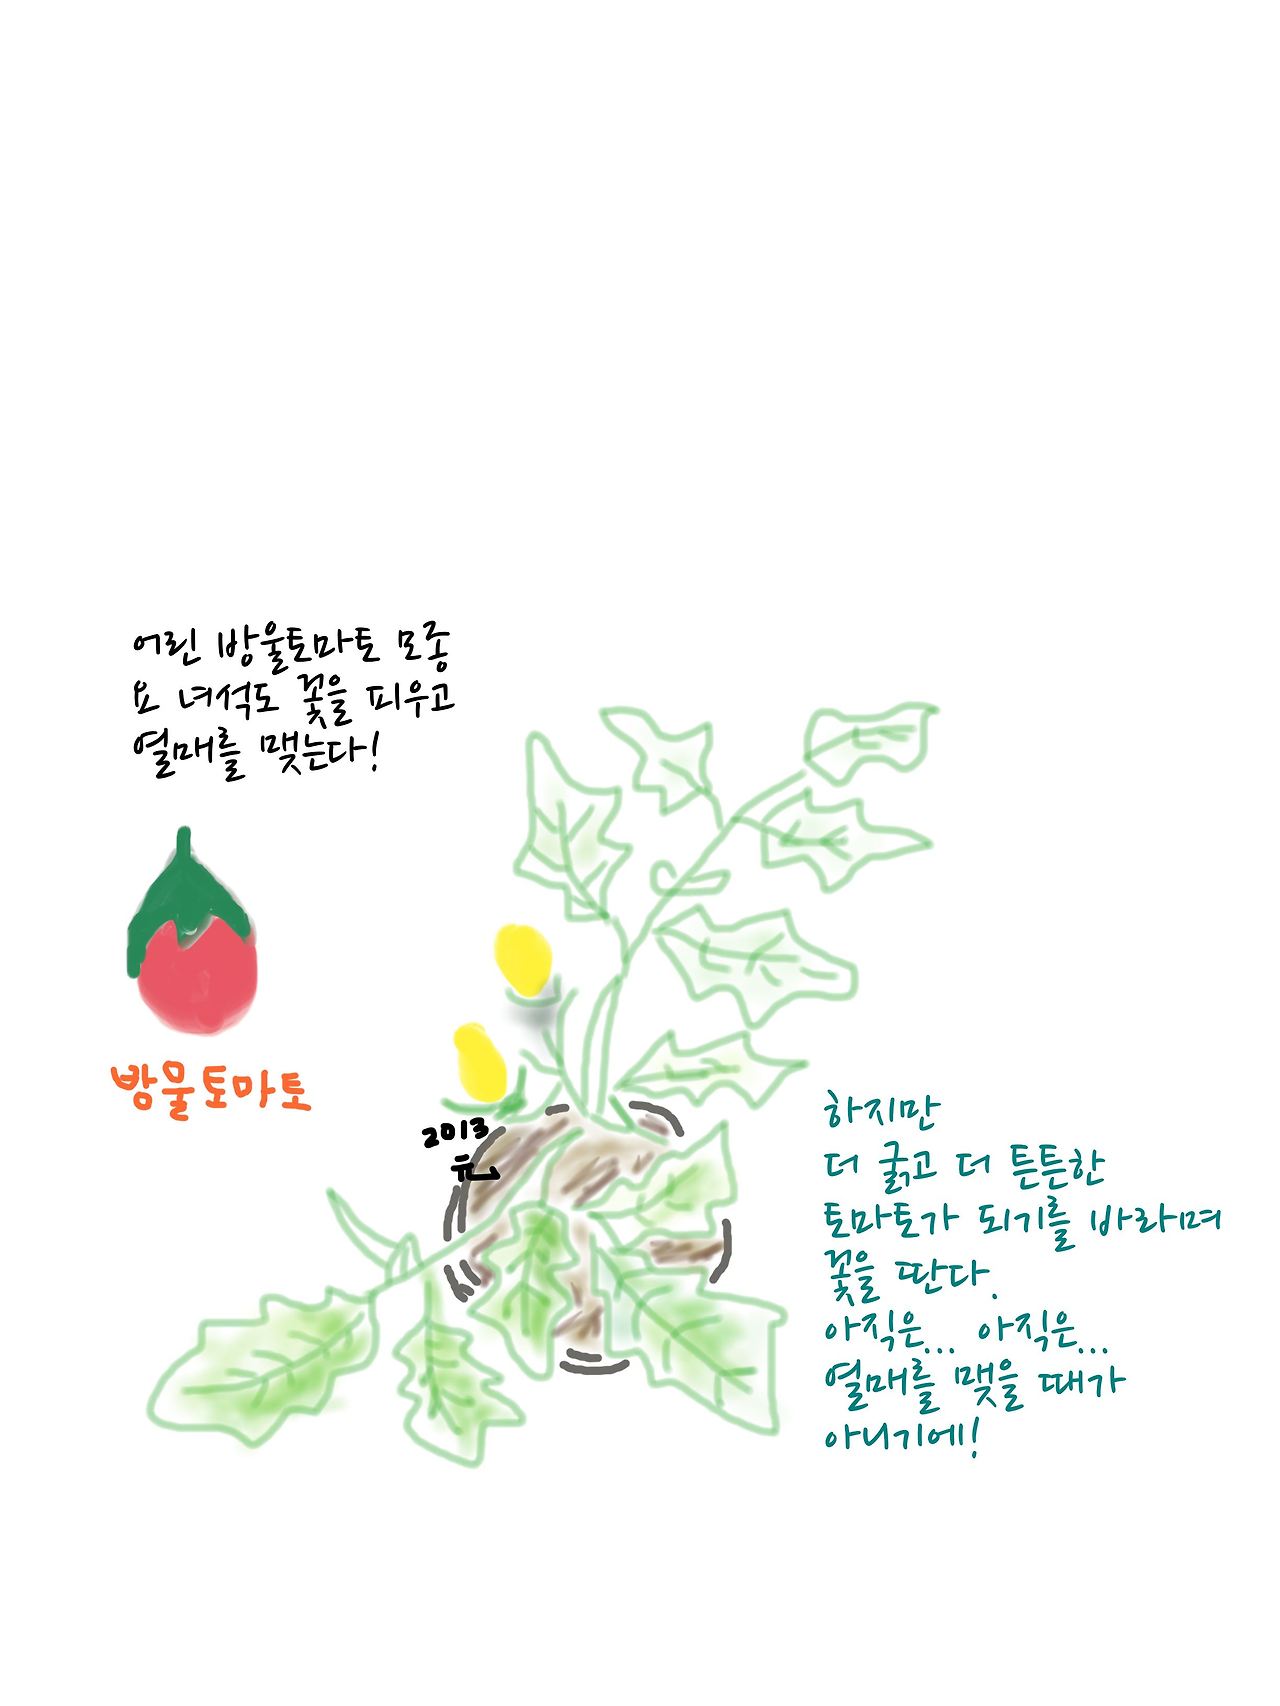 어린 방울토마토 모종
요 녀석도 꽃을 피우고
열매를 맺는다!
방물토마토
2013
하지만
더 굵고 더 튼튼한
토마토가 되기를 바라며
꽃을 딴다.
아직은... 아직은...
열매를 맺을 때가
아니기에!